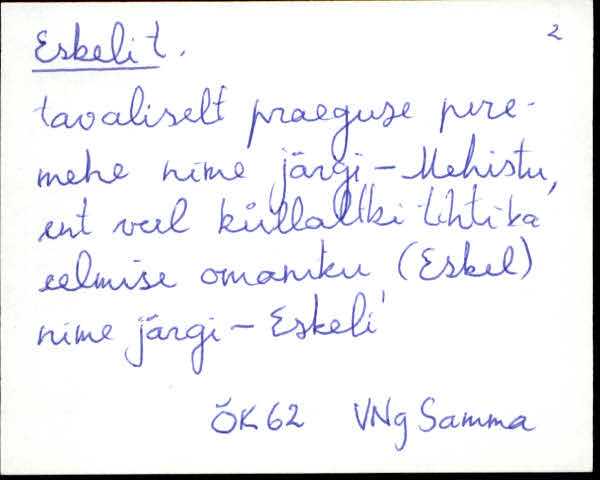 2
Eskeli t.
tavaliselt praeguse pere-
mehe nime järgi – Mehistu,
ent veel küllaltki tihti ka
eelmise omaniku (Eskel)
nime järgi – Eskeli'
ÕK 62 VNg Samma